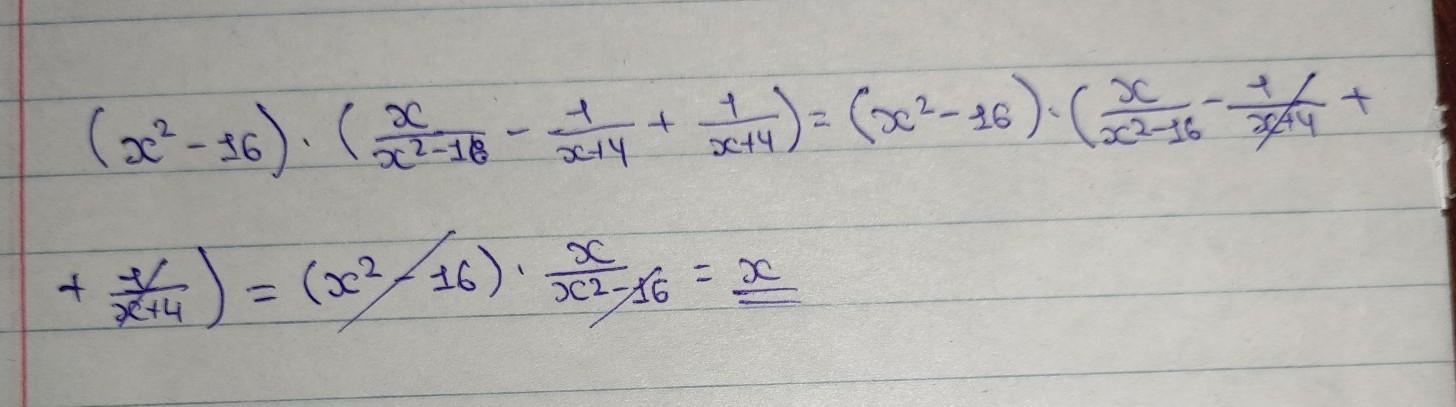 (x² - 16) · (x/(x²-16) - 1/(x+4) + 1/(x+4)) = (x² - 16) · (x/(x²-16) - 1/(x+4) +
+ 1/(x+4)) = (x² - 16) · x/(x²-16) = x